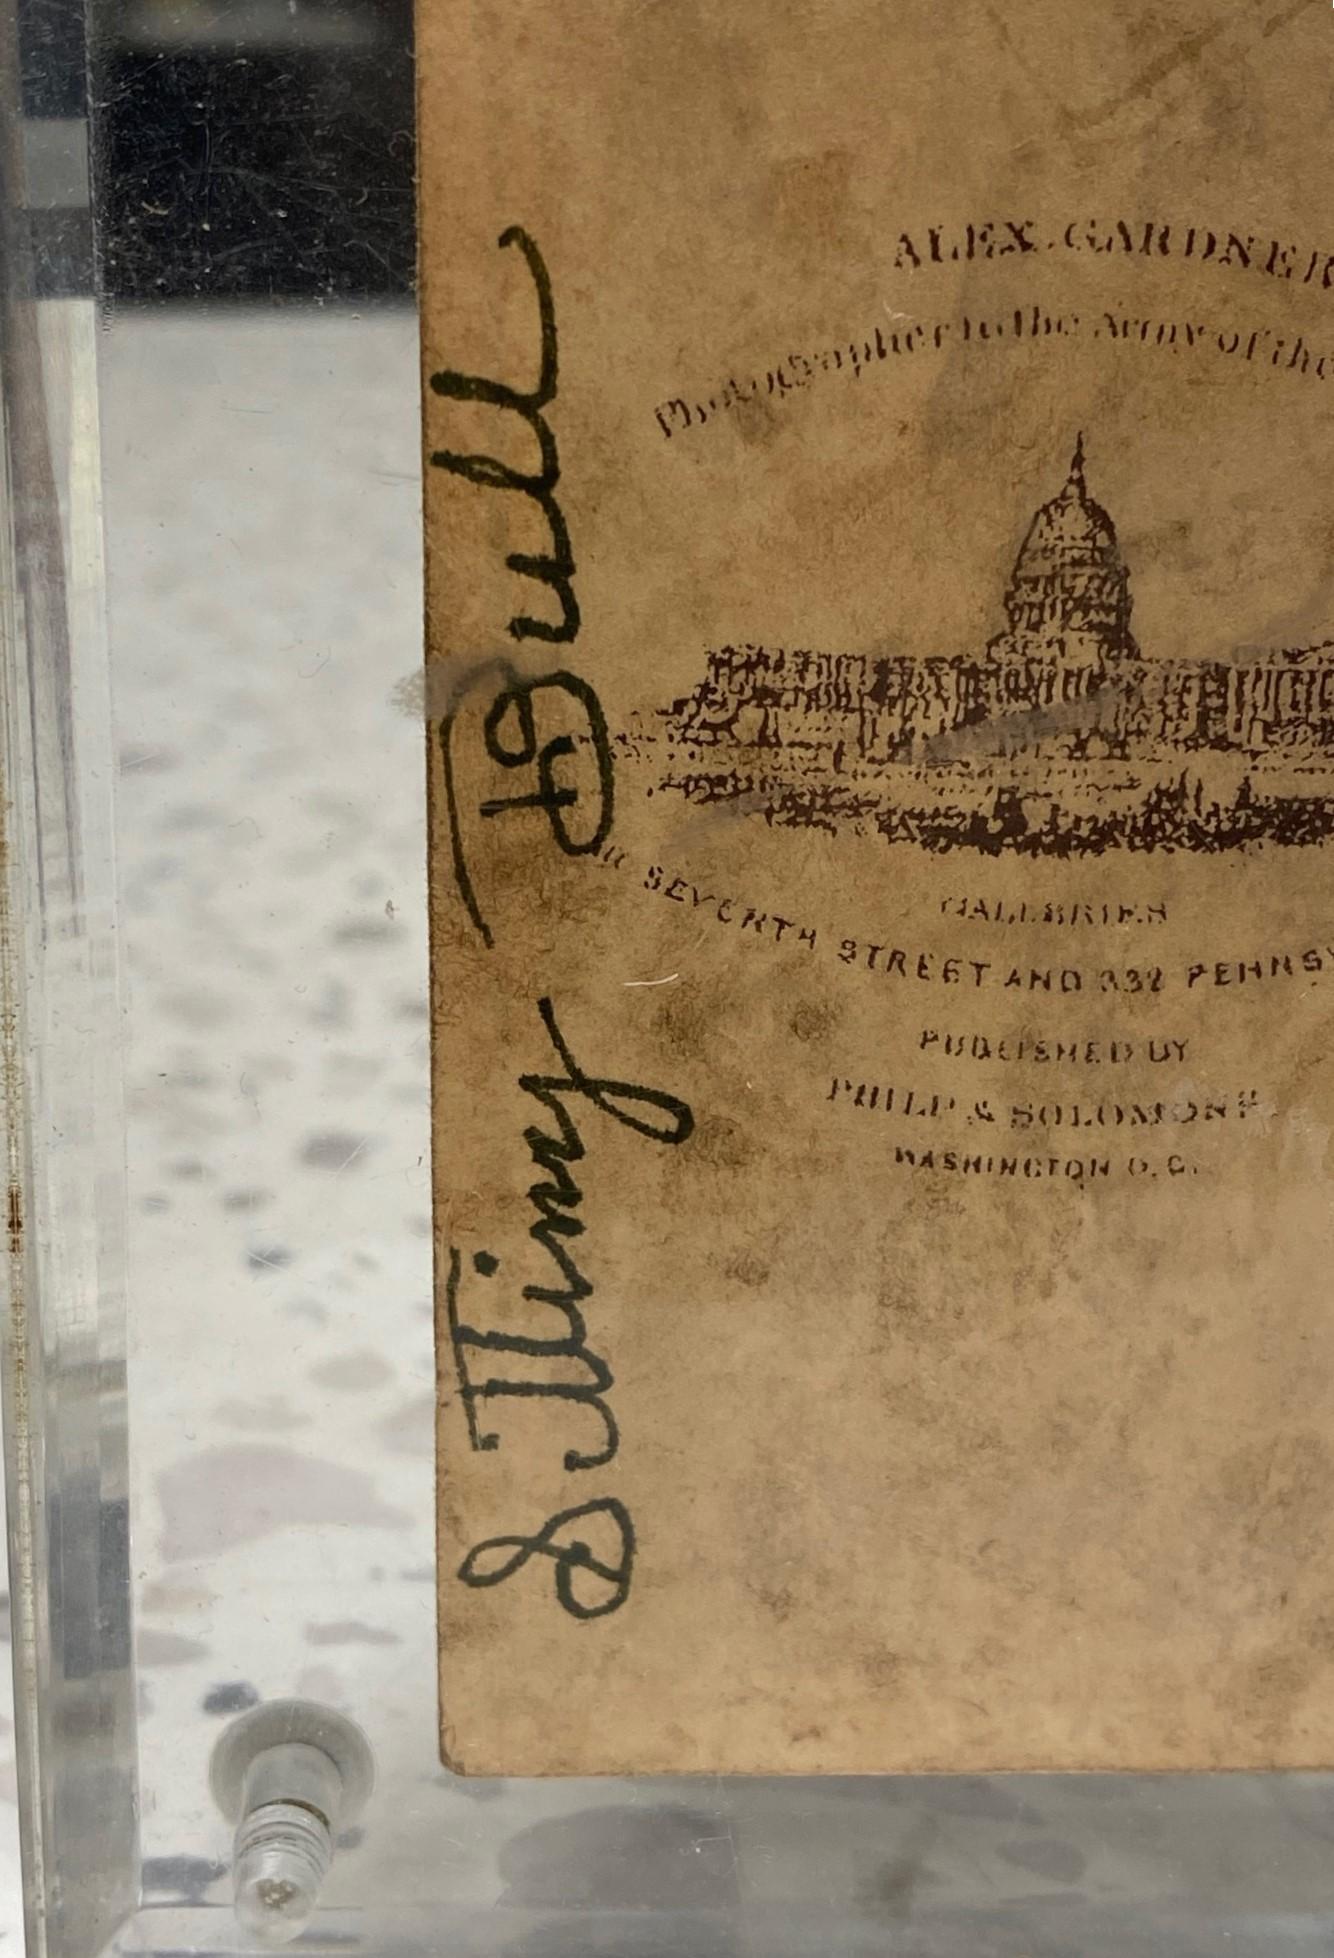 ALEX. GARDNER
Photographer to the Army of the
GALLERIES
SEVENTH STREET AND 332 PENNSY
PUBLISHED BY
PHILP & SOLOMONS
WASHINGTON D. C.
Jimmy Bull